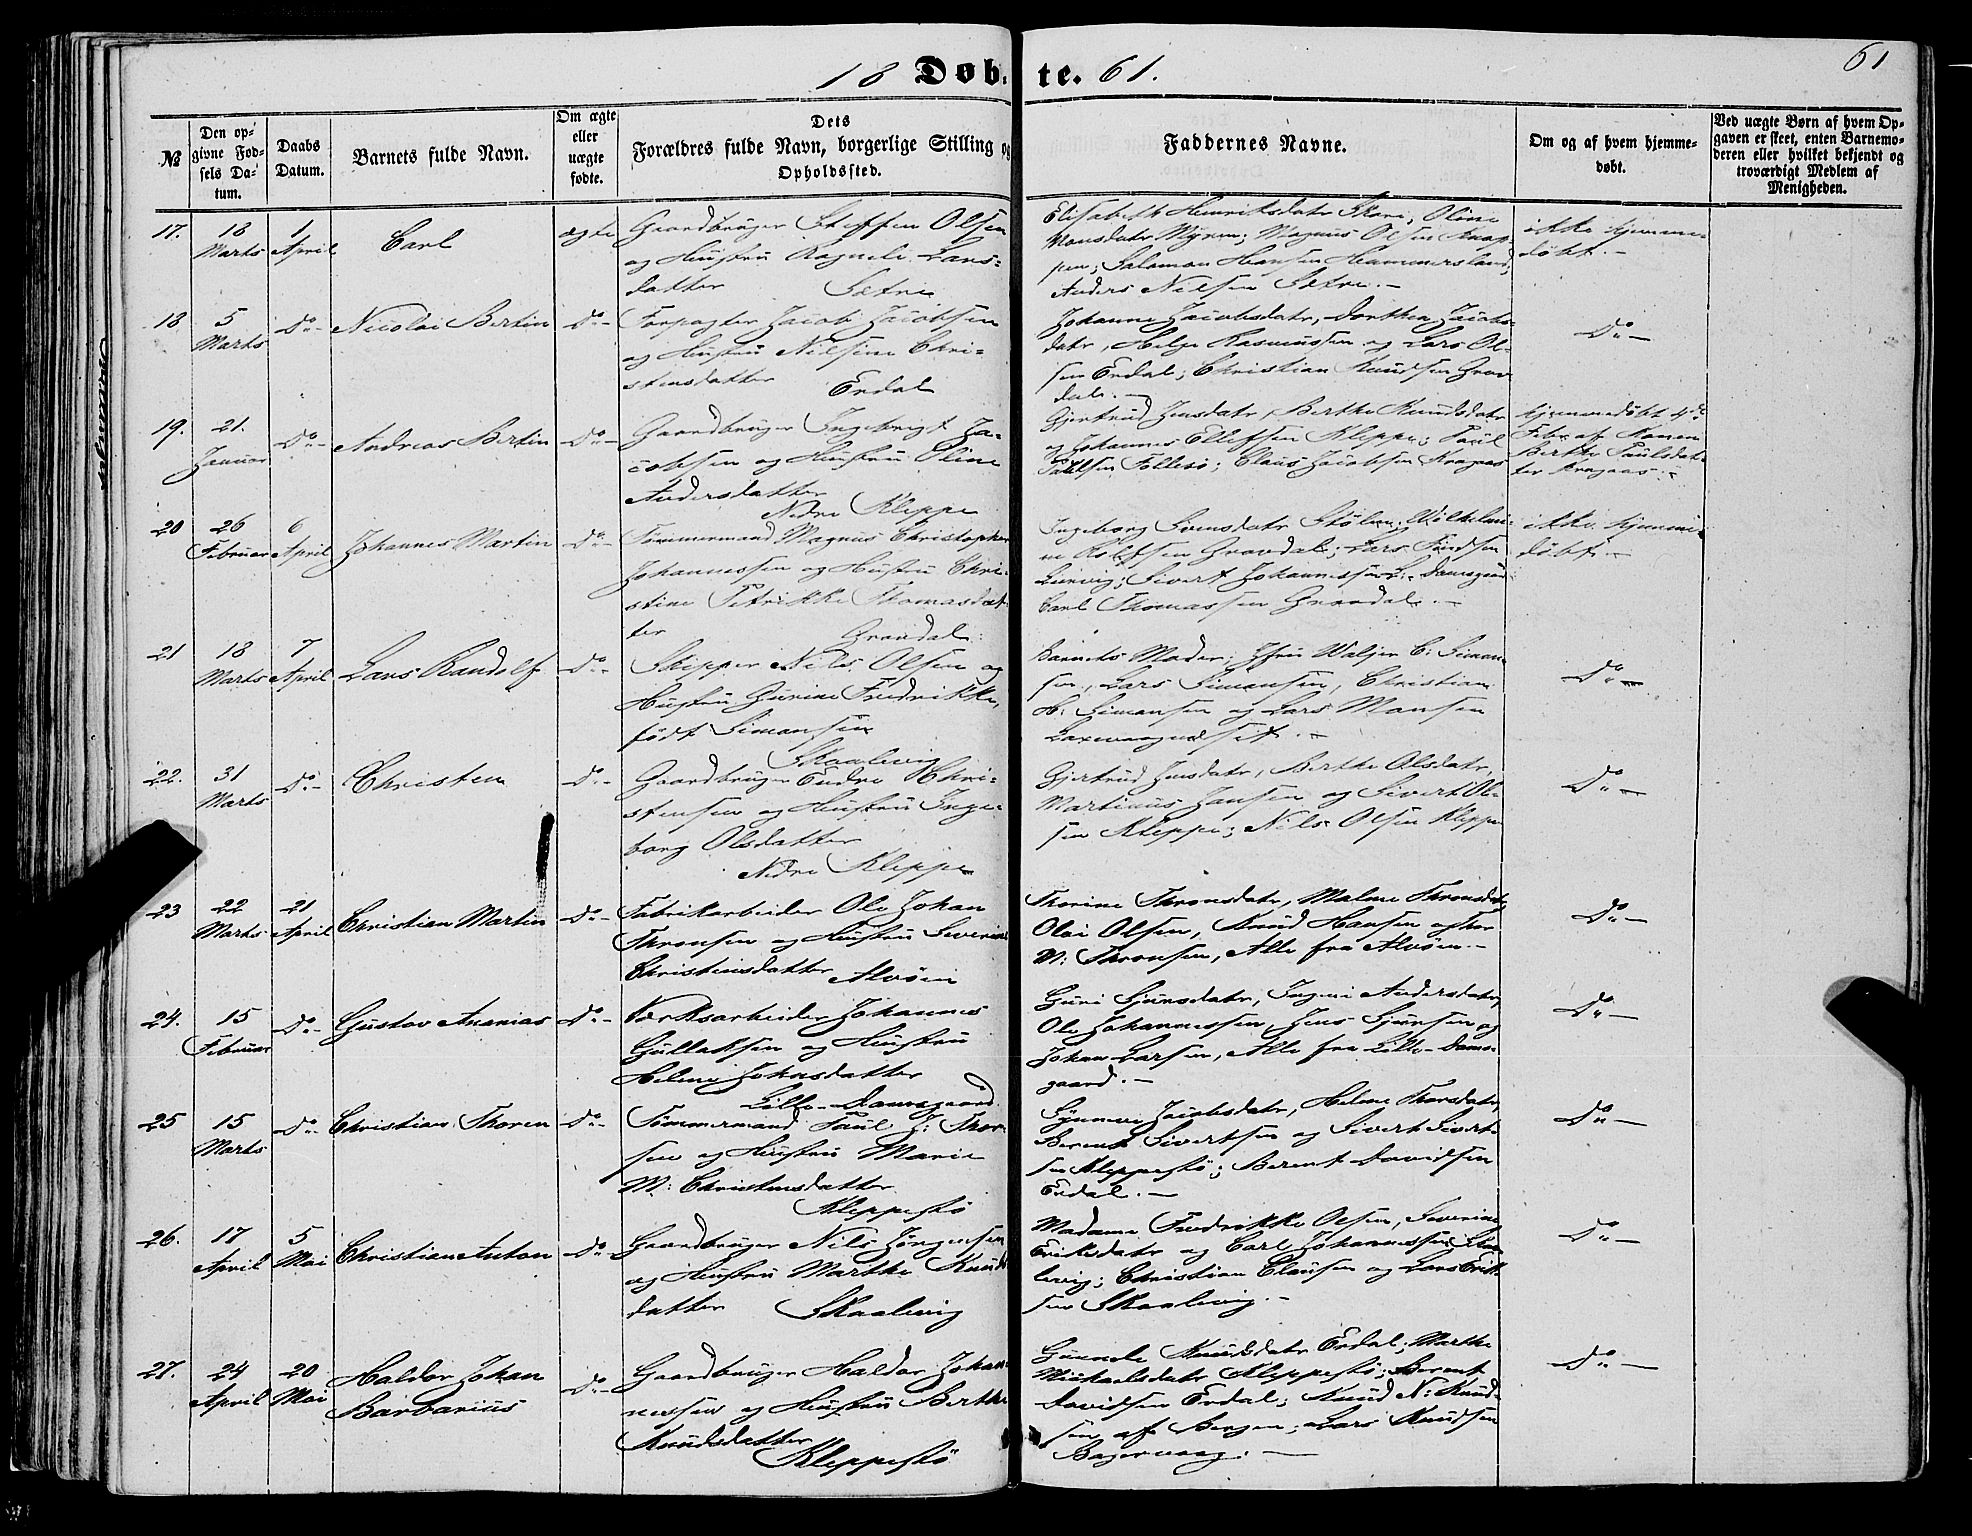 61
18 Døb. te. 61.
№
Den op-
givne Fød-
sels Da-
tum.
Daabs
Datum.
Barnets fulde Navn.
Om ægte
eller
uægte
fødte.
Dets
Forældres fulde Navn, borgerlige Stilling og
Opholdssted.
Faddernes Navne.
Om og af hvem hjemme-
døbt.
Ved uægte Børn af hvem Op-
gaven er skeet, enten Barnemo-
deren eller hvilket bekjendt og
troværdigt Medlem af
Menigheden.
17.
18
Marts
1
April
Carl
ægte
Gaardbruger Steffen Olsen
og Hustru Ragnele Lars-
datter Sætre
Elisabeth Henriksdatr Skore; Oline
Monsdatr Myren; Magnus Olsen Knap-
pen; Salamon Hansen Hammersland;
Anders Nilsen Sætre.-
ikke hjemme-
døbt.-
18
5
Marts
Do-
Nicolai Bertin
Do-
Forpagter Jacob Jacobsen
og Hustru Nilsine Chri-
stensdatter Erdal
Johanne Jacobsdatr, Dorthea Jacobs-
datr, Helge Rasmussen og Lars Ol-
sen Erdal; Christian Knudsen Grav-
dal.-
Do-
19.
21.
Januar
Do-
Andreas Bertin
Do-
Gaardbruger Ingebrigt Ja-
cobsen og Hustru Oline
Andersdatter
Nedre Kleppe
Gjertrud Jensdatr, Berthe Knudsdatr
og Johannes Ellefsen Kleppe; Paul
Paulsen Follesø; Claus Jacobsen Kragaas
hjemmedøbt 4de
Febr. af Konen
Berthe Paulsdat-
ter Kragaas.-
20
26
Februar
6
April
Johannes Martin
Do-
Tømmermand Magnus Christopher
Johannessen og Hustru Chri-
stine Petrikke Thomasdat-
ter Gravdal
Ingeborg Svensdatr Stølen; Wilhelmi-
ne Rolfsen Gravdal; Lars
Sivert Johannessen L: Damsgaard
Carl Thomassen Gravdal.-
ikke hjemme-
døbt.-
21
18
Marts
7
April
Lars Randolf
Do-
Skipper Nils Olsen og
Hustru Gurine Fredrikke,
født Simonsen
Skaalevig
Barnets Moder; Jfru Waljer C: Simon-
sen, Lars Simonsen, Christian
H: Simonsen og Lars Monsen
Do-
22.
31
Marts
Do-
Christen
Do-
Gaardbruger Endre Chri-
stensen og Hustru Inge-
borg Olsdatter
Nedre Kleppe
Gjertrud Jensdatr, Berthe Olsdatr,
Martinus Jansen og Sivert Ol-
sen Kleppe; Nils Olsen Kleppe
Do-
23
22
Marts
21
April
Christian Martin
Do-
Fabrikarbeider Ole Johan
Thronsen og Hustru Severine
Christensdatter Alvøen
Thorine Thronsdatr, Malene Thronsdatr,
Olai Olsen, Knud Hansen og
M: Thronsen, Alle fra Alvøen.-
Do-
24.
15
Februar
Do-
Gustav Ananias
Do-
Værksarbeider Johannes
Gullaksen og Hustru
Helene Johnsdatter
Lille-Damsgaard
Guri Sjursdatr, Ingeri Andersdatr,
Ole Johannessen, Jens Sjursen og
Johan Larsen, Alle fra Lille-Dams-
gaard.-
Do-
25
15
Marts
Do-
Christian Thoren
Do-
Tømmermand Paul J: Thor-
sen og Hustru Marie
M: Christensdatter
Kleppestø
Synneve Jacobsdatr, Helene Thorsdatr,
Berent Sivertsen og Sivert Sivert-
sen Kleppestø; Berent Davidsen
Erdal.-
Do-
26.
17
April
5
Mai
Christian Anton
Do-
Gaardbruger Nils Jørgensen
og Hustru Marthe Knuds-
datter Skaalevig
Madame Fredrikke Olsen, Severine
Eriksdatr og Carl Johannessen Skaa-
levig; Christian Clausen og Lars Erik-
sen Skaalevig.-
Do-
27.
24
April
20
Mai
Haldor Johan
Barbarius
Do-
Gaardbruger Haldor Johan-
nessen og Hustru Berthe
Knudsdatter
Kleppestø
Gunnele Knudsdatr Erdal; Marthe
Mickelsdatr Kleppestø; Berent
Davidsen Erdal; Knud N: Knud-
sen af Bergen; Lars Knudsen
.-
Do-